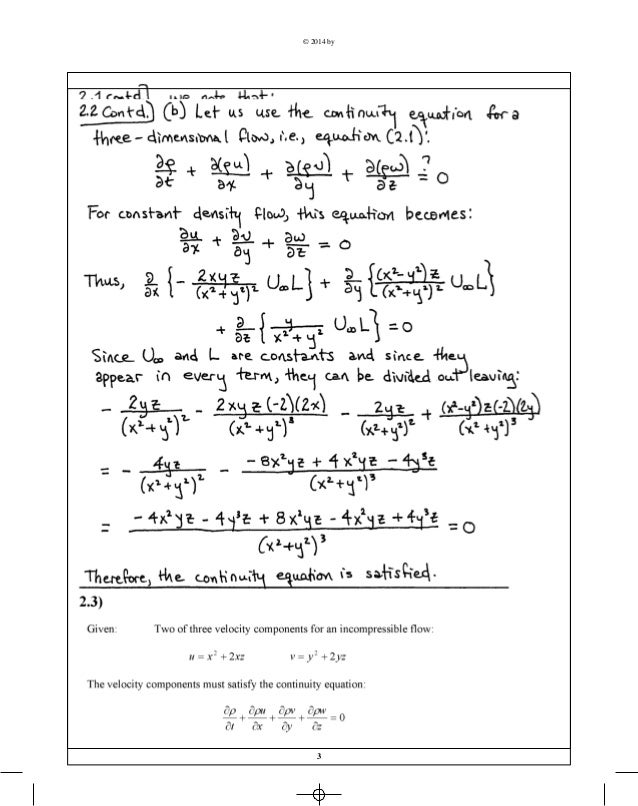 © 2014 by
2.2 Contd.) (b) Let us use the continuity equation for a
three-dimensional flow, i.e., equation (2.1):
∂ρ/∂t + ∂(ρu)/∂x + ∂(ρv)/∂y + ∂(ρw)/∂z ≟ 0
For constant density flow, this equation becomes:
∂u/∂x + ∂v/∂y + ∂w/∂z = 0
Thus, ∂/∂x {- 2xyz/(x²+y²)² U∞L} + ∂/∂y {(x²-y²)z/(x²+y²)² U∞L}
+ ∂/∂z {y/(x²+y²) U∞L} = 0
Since U∞ and L are constants and since they
appear in every term, they can be divided out leaving:
- 2yz/(x²+y²)² - 2xyz(-2)(2x)/(x²+y²)³ - 2yz/(x²+y²)² + (x²-y²)z(-2)(2y)/(x²+y²)³
= - 4yz/(x²+y²)² - (-8x²yz + 4x²yz - 4y³z)/(x²+y²)³
= (-4x²yz - 4y³z + 8x²yz - 4x²yz + 4y³z)/(x²+y²)³ = 0
Therefore, the continuity equation is satisfied.
2.3)
Given: Two of three velocity components for an incompressible flow:
u = x² + 2xz v = y² + 2yz
The velocity components must satisfy the continuity equation:
∂ρ/∂t + ∂ρu/∂x + ∂ρv/∂y + ∂ρw/∂z = 0
3